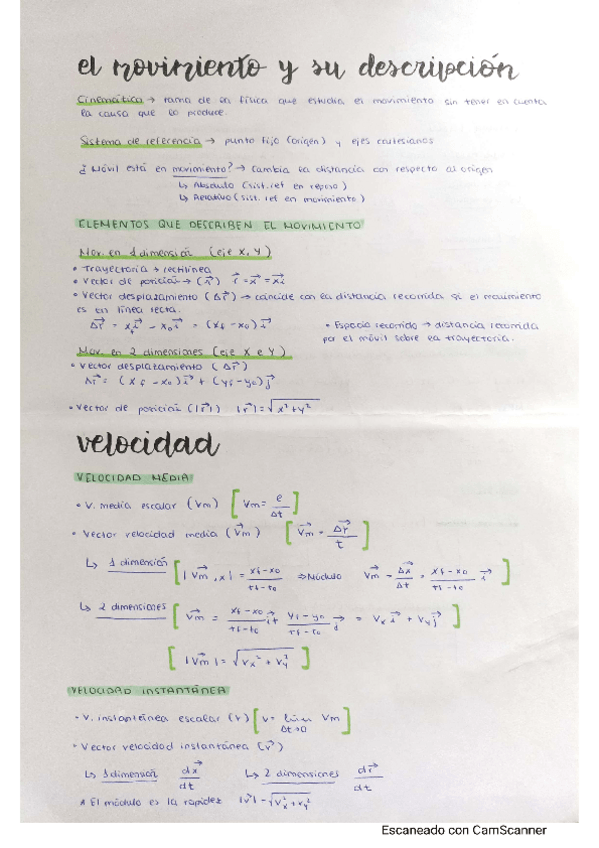 el movimiento y su descripción
Cinemática → rama de la física que estudia el movimiento sin tener en cuenta
la causa que lo produce.
Sistema de referencia → punto fijo (origen) y ejes cartesianos
¿Móvil está en movimiento? → Cambia la distancia con respecto al origen
↳ Absoluto (sist. ref en reposo)
↳ Relativo (sist. ref en movimiento)
ELEMENTOS QUE DESCRIBEN EL MOVIMIENTO
Mov. en 1 dimensión (eje X, Y)
• Trayectoria → rectilínea
• Vector de posición → (r⃗) r⃗ = x⃗ = x i⃗
• Vector desplazamiento (Δr⃗) → coincide con la distancia recorrida si el movimiento
es en línea recta.
Δr⃗ = xf i⃗ - x0 i⃗ = (xf - x0) i⃗
• Espacio recorrido → distancia recorrida
por el móvil sobre la trayectoria.
Mov. en 2 dimensiones (eje X e Y)
• Vector desplazamiento (Δr⃗)
Δr⃗ = (xf - x0) i⃗ + (yf - y0) j⃗
• Vector de posición (|r⃗|) |r⃗| = √x² + y²
velocidad
VELOCIDAD MEDIA
• V. media escalar (Vm) [Vm = e/Δt]
• Vector velocidad media (V⃗m) [V⃗m = Δr⃗/t]
↳ 1 dimensión [|V⃗m,x| = xf - x0/tf - t0 ⇒ Módulo V⃗m = Δx⃗/Δt = xf - x0/tf - t0 i⃗]
↳ 2 dimensiones [V⃗m = xf - x0/tf - t0 i⃗ + yf - y0/tf - t0 j⃗ = Vx i⃗ + Vy j⃗]
[|V⃗m| = √Vx² + Vy²]
VELOCIDAD INSTANTÁNEA
• V. instantánea escalar (V) [V = lim Δt→0 Vm]
• Vector velocidad instantánea (V⃗)
↳ 1 dimensión dx⃗/dt ↳ 2 dimensiones dr⃗/dt
* El módulo es la rapidez |V⃗| = √Vx² + Vy²
Escaneado con CamScanner